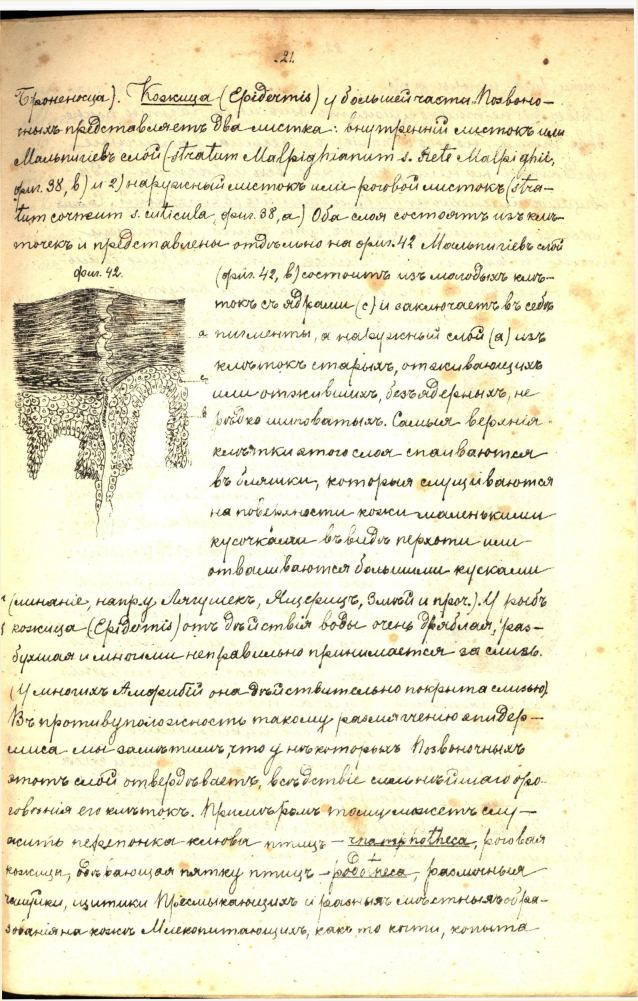 21.
Броненосца). Кожица (Epidermis) у большей части Позвоно-
чныхъ представляетъ два листка: внутренній листокъ или
Мальпигіевъ слой (stratum Malpighianum s. Rete Malpighii,
фиг. 38, b) и 2) наружный листокъ или роговой листокъ (stra-
tum corneum s. cuticula, фиг. 38, a) Оба слоя состоятъ изъ клѣ-
точекъ и представлены отдѣльно на фиг. 42 Мальпигіевъ слой
фиг. 42.
(фиг. 42, b) состоитъ изъ молодыхъ клѣ-
токъ съ ядрами (c) и заключаетъ въ себѣ
a
пигменты, а наружный слой (a) изъ
клѣтокъ старыхъ, отживающихъ
c
или отжившихъ, безъядерныхъ, не
b
рѣдко шиповатыхъ. Самыя верхнія
клѣтки этого слоя спаиваются
въ бляшки, которыя слущиваются
на поверхности кожи маленькими
кусочками въ видѣ перхоти или
отваливаются большими кусками
(линяніе, напр. у Лягушекъ, Ящерицъ, Змѣй и проч.). У рыбъ
кожица (Epidermis) отъ дѣйствія воды очень дряблая, раз-
бухшая и многими неправильно принимается за слизь.
(У многихъ Амфибій она дѣйствительно покрыта слизью).
Въ противуположность такому размягченію эпидер-
миса мы замѣтимъ, что у нѣкоторыхъ Позвоночныхъ
этотъ слой отвердѣваетъ, вслѣдствіе сильнѣйшаго оро-
говѣнія его клѣтокъ. Примѣромъ тому можетъ слу-
жить перепонка клюва птицъ – rhamphotheca, роговая
кожица, одѣвающая пятку птицъ – podotheca, различныя
чешуйки, щитики Пресмыкающихъ и разныя мѣстныя обра-
зованія на кожѣ Млекопитающихъ, какъ то когти, копыта